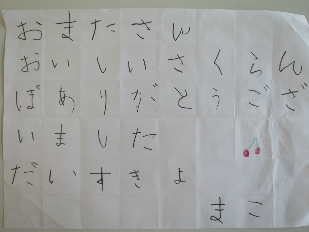 おまたさん
おいしいさくらん
ぼありがとうござ
いました
だいすきよ
まこ